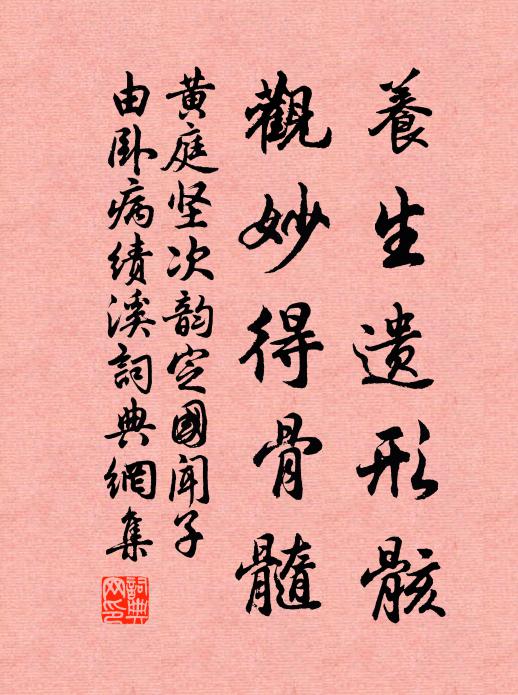 養生遗形骸
觀妙得骨髓
黄庭坚次韵定國闻子
由卧病绩溪詞典網集
詞典网印